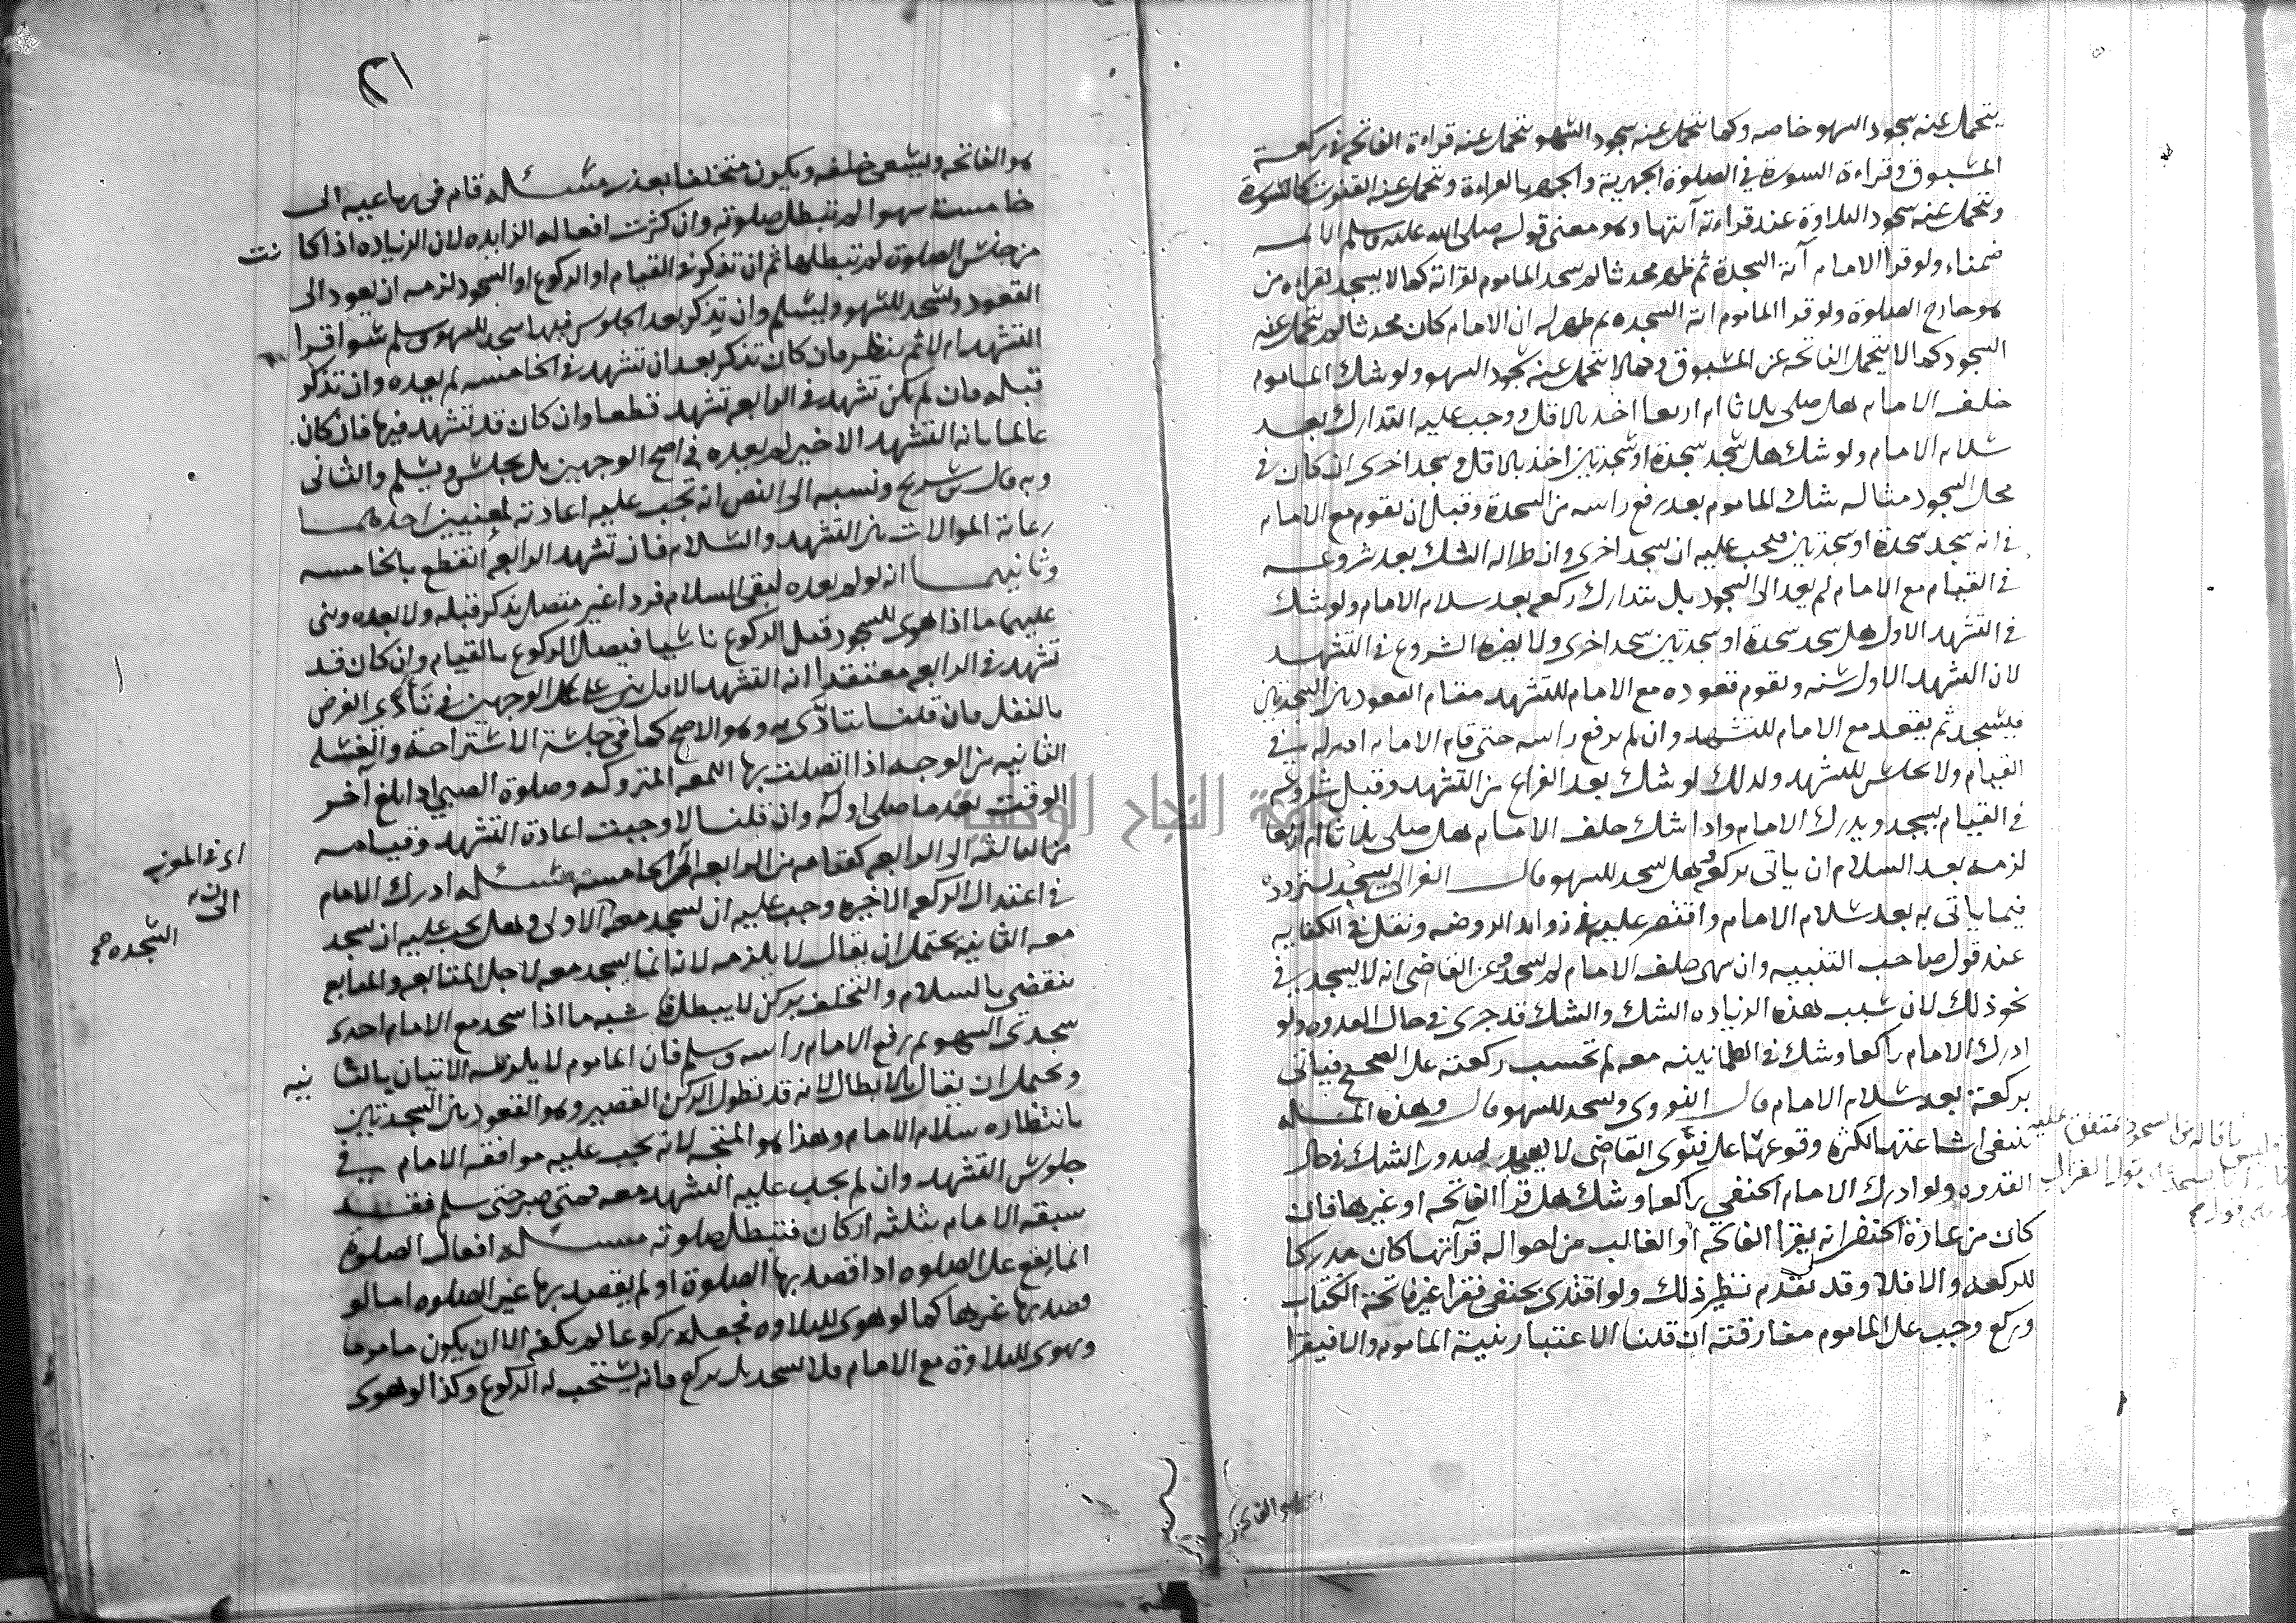 يتحمل عنه سجود السهو خاصه وكما يتحمل عنه سجود السهو يتحمل عنه قراءة الفاتحه في ركعة
المسبوق وقراءة السورة في الصلوة الجهرية والجهر بالقراءة ويتحمل عنه القنوت كالسورة
ويتحمل عنه سجود التلاوة عند قراءته آيتها وهو معنى قوله صلى الله عليه وسلم الائمه
ضمناء ولو قرا الامام آية السجدة ثم ظهر محدثا لم يسجد الماموم لقراته كما لا يسجد لقراءه من
هو خارج الصلوة ولو قرا الماموم اية السجده ثم ظهر له ان الامام كان محدثا لم يتحمل عنه
السجود كما لا يتحمل الفاتحه عن المسبوق وهل لا يتحمل عنه سجود السهو ولو شك الماموم
خلف الامام هل صلى ثلاثا ام اربعا اخذ بالاقل ووجب عليه التدارك بعد
سلام الامام ولو شك هل سجد سجدة او سجدتين اخذ بالاقل وسجد اخرى ان كان في
محل السجود مثاله شك الماموم بعد رفع راسه من السجدة وقبل ان يقوم مع الامام
في انه سجد سجدة او سجدتين فيجب عليه ان يسجد اخرى وان طرا له الشك بعد شروعه
في القيام مع الامام لم يعد الى السجود بل يتدارك ركعه بعد سلام الامام ولو شك
في التشهد الاول هل سجد سجدة او سجدتين سجد اخرى ولا يضره الشروع في التشهد
لان التشهد الاول سنه ويقوم قعوده مع الامام للتشهد مقام القعود بين السجدتين
فيسجد ثم يقعد مع الامام للتشهد وان لم يرفع راسه حتى قام الامام ادركه في
القيام ولا يجلس للتشهد ولذلك لو شك بعد الفراغ من التشهد وقبل شروعه
في القيام يسجد ويدرك الامام واذا شك خلف الامام هل صلى ثلاثا ام اربعا
لزمه بعد السلام ان ياتى بركعه وهل يسجد للسهو قال الغزالى يسجد لتردده
فيما ياتى به بعد سلام الامام واقتصر عليه في زوايد الروضه ونقل في الكفايه
عند قول صاحب التنبيه وان سهى خلف الامام لم يسجد عن القاضى انه لا يسجد في
نحو ذلك لان سبب هذه الزياده الشك والشك قد جرى في حال القدوه ولو
ادرك الامام راكعا وشك في الطمانينه معه لم تحسب ركعته على الصحيح فياتى
بركعة بعد سلام الامام قال النووى ويسجد للسهو قال وهذه المسله
ينبغى اشاعتها لكثرة وقوعها وعلى فتوى القاضى لا يسجد لصدور الشك في حال
القدوه ولو ادرك الامام الحنفي راكعا وشك هل قرا الفاتحه او غيرها فان
كان من عادة الحنفى انه يقرا الفاتحه او الغالب من احواله قرآتها كان مدركا
للركعه والا فلا وقد تقدم نظير ذلك ولو اقتدى بحنفى فقرا غير فاتحة الكتاب
وركع وجب على الماموم مفارقته ان قلنا الاعتبار بنية الماموم والا فيقرا
٢١
هو الفاتحه ويسعى خلفه ويكون متخلفا بعذر مسئله قام في رباعيه الى
خامسة سهوا لم تبطل صلوته وان كثرت افعاله الزايده لان الزياده اذا كانت
من جنس الصلوة لم تبطلها ثم ان تذكر في القيام او الركوع او السجود لزمه ان يعود الى
القعود ويسجد للسهو ويسلم وان تذكر بعد الجلوس فيها سجد للسهو وسلم سوا قرا
التشهد ام لا ثم ينظر فان كان تذكر بعد ان تشهد في الخامسه لم يعده وان تذكر
قبله فان لم يكن تشهد في الرابعه تشهد قطعا وان كان قد تشهد فيها فان كان
عالما بانه التشهد الاخير لم يعده في اصح الوجهين بل يجلس ويسلم والثانى
وبه قال بن سريج ونسبه الى النص انه تجب عليه اعادته لمعنيين احدهما
رعاية الموالات بين التشهد والسلام فان تشهد الرابعه انقطع بالخامسه
وثانيهما انه لو لم يعده لبقى السلام فردا غير متصل بذكر قبله ولا بعده وبنى
عليهما ما اذا هوى للسجود قبل الركوع ناسيا فيصل الركوع بالقيام وان كان قد
تشهد في الرابعه معتقدا انه التشهد الاول بنى على الوجهين في تأدي الفرض
بالنفل فان قلنا يتادى به وهو الاصح كما في جلسة الاستراحة والغسله
الثانيه من الوجه اذا اتصلت بها اللمعه المتروكه وصلوة الصبي اذا بلغ آخر
الوقت بعد ما صلى اوله وان قلنا لا وجبت اعادة التشهد وقيامه
من الثالثه الى الرابعه كقيامه من الرابعه الى الخامسه مسئله ادرك الامام
في اعتدال الركعه الاخيره وجب عليه ان يسجد معه الاولى وهل يجب عليه ان يسجد
معه الثانيه يحتمل ان يقال لا يلزمه لانه انما يسجد معه لاجل المتابعه والمتابعه
تنقضى بالسلام والتخلف بركن لا يبطل شبه ما اذا سجد مع الامام احدى
سجدتى السهو ثم رفع الامام راسه وسلم فان الماموم لا يلزمه الاتيان بالثانيه
ويحتمل ان يقال بالابطال لانه قد تطول الركن القصير وهو القعود بين السجدتين
بانتظاره سلام الامام وهذا هو المتجه لانه يجب عليه موافقه الامام في
جلوس التشهد وان لم يجب عليه التشهد معه فمتى صبر حتى سلم فقد
سبقه الامام بثلثه اركان فتبطل صلوته مسئله افعال الصلوة
انما يقع على الصلوه اذا قصد بها الصلوة او لم يقصد بها غير الصلوه اما لو
قصد بها غيرها كما لو هوى للتلاوه فجعله ركوعا لم يكفه الا ان يكون ماموما
وهوى للتلاوة مع الامام فلا يسجد بل يركع فانه يستحب له الركوع وكذا لو هوى
السجده
جامعة النجاح الوطنية
هو الفاتحه